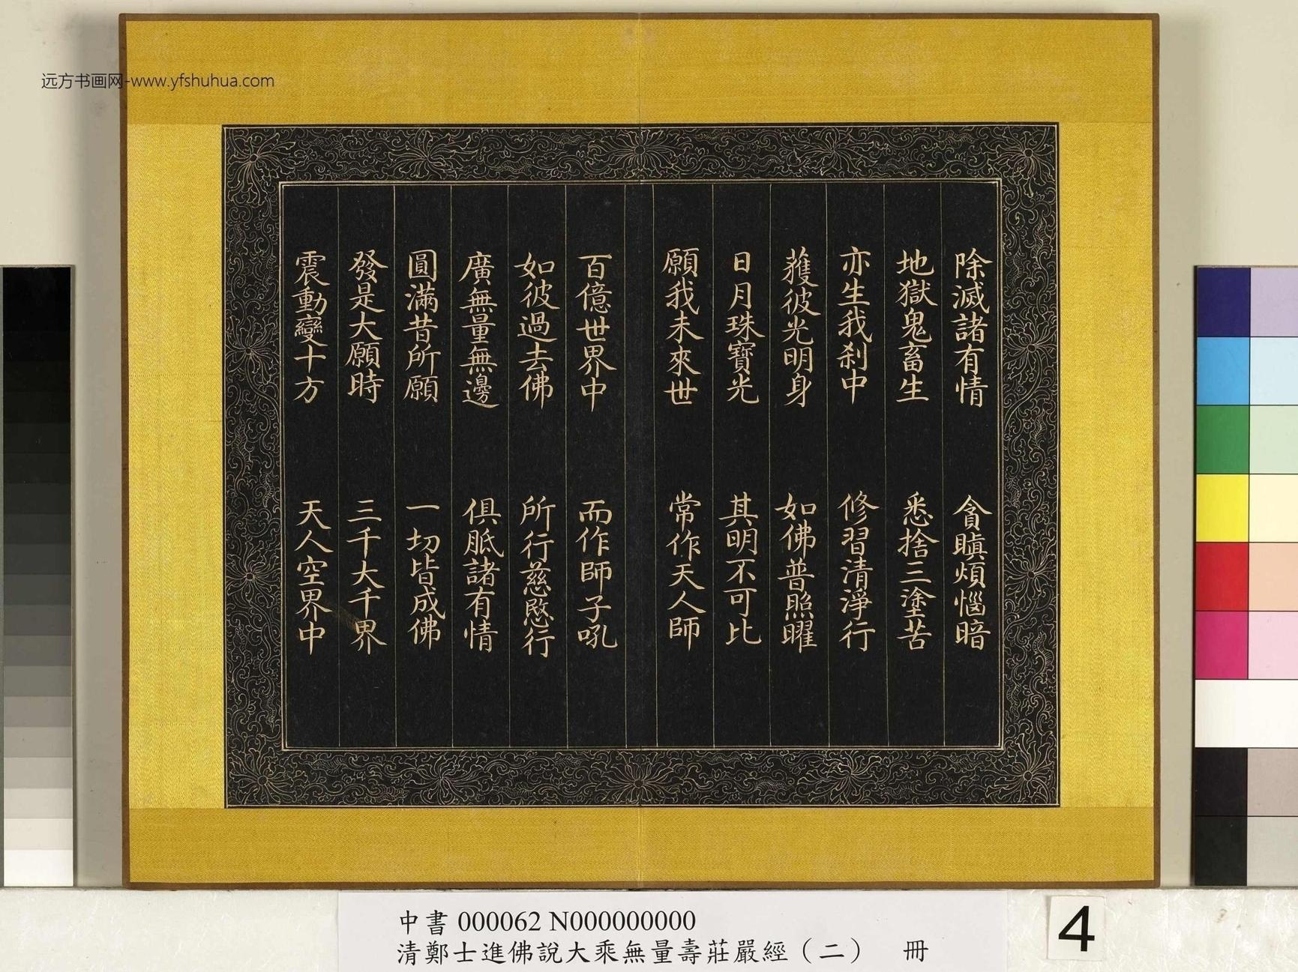 远方书画网-www.yfshuhua.com
除滅諸有情 貪瞋煩惱暗
地獄鬼畜生 悉捨三塗苦
亦生我刹中 修習清淨行
獲彼光明身 如佛普照曜
日月珠寶光 其明不可比
願我未來世 常作天人師
百億世界中 而作師子吼
如彼過去佛 所行慈愍行
廣無量無邊 俱胝諸有情
圓滿昔所願 一切皆成佛
發是大願時 三千大千界
震動變十方 天人空界中
中書 000062 N000000000
清鄭士進佛說大乘無量壽莊嚴經（二） 冊
4